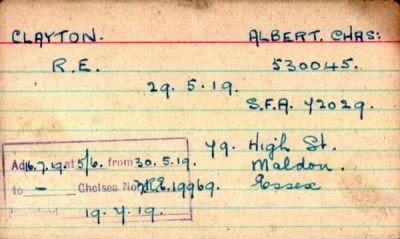 CLAYTON. ALBERT. CHAS:
R.E. 530045.
29. 5. 19.
S.F.A. 72029.
79. High St.
Maldon.
Essex
Ad 16.7.19. at 5/6. from 30.5.19.
to — Chelsea No. 19969.
19. 7. 19.